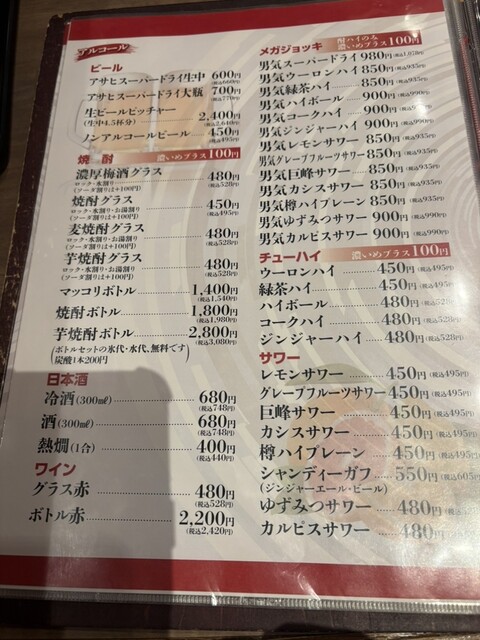 アルコール
ビール
アサヒスーパードライ生中 600円
(税込660円)
アサヒスーパードライ大瓶 700円
(税込770円)
生ビールピッチャー
(生中4.5杯分) 2,400円
(税込2,640円)
ノンアルコールビール 450円
(税込495円)
焼酎 濃いめプラス100円
濃厚梅酒グラス 480円
ロック・水割り (税込528円)
(ソーダ割りは+100円)
焼酎グラス 450円
ロック・水割り・お湯割り (税込495円)
(ソーダ割りは+100円)
麦焼酎グラス 480円
ロック・水割り・お湯割り (税込528円)
(ソーダ割りは+100円)
芋焼酎グラス 480円
ロック・水割り・お湯割り (税込528円)
(ソーダ割りは+100円)
マッコリボトル 1,400円
(税込1,540円)
焼酎ボトル 1,800円
(税込1,980円)
芋焼酎ボトル 2,800円
(税込3,080円)
(ボトルセットの氷代・水代、無料です)
炭酸1本200円
日本酒
冷酒(300㎖) 680円
(税込748円)
酒(300㎖) 680円
(税込748円)
熱燗(1合) 400円
(税込440円)
ワイン
グラス赤 480円
(税込528円)
ボトル赤 2,200円
(税込2,420円)
メガジョッキ 酎ハイのみ 濃いめプラス100円
男気スーパードライ 980円(税込1,078円)
男気ウーロンハイ 850円(税込935円)
男気緑茶ハイ 850円(税込935円)
男気ハイボール 900円(税込990円)
男気コークハイ 900円(税込990円)
男気ジンジャーハイ 900円(税込990円)
男気レモンサワー 850円(税込935円)
男気グレープフルーツサワー 850円(税込935円)
男気巨峰サワー 850円(税込935円)
男気カシスサワー 850円(税込935円)
男気樽ハイプレーン 850円(税込935円)
男気ゆずみつサワー 900円(税込990円)
男気カルピスサワー 900円(税込990円)
チューハイ 濃いめプラス100円
ウーロンハイ 450円(税込495円)
緑茶ハイ 450円(税込495円)
ハイボール 480円(税込528円)
コークハイ 480円(税込528円)
ジンジャーハイ 480円(税込528円)
サワー
レモンサワー 450円(税込495円)
グレープフルーツサワー 450円(税込495円)
巨峰サワー 450円(税込495円)
カシスサワー 450円(税込495円)
樽ハイプレーン 450円(税込495円)
シャンディーガフ 550円(税込605円)
(ジンジャーエール・ビール)
ゆずみつサワー 480円
カルピスサワー 480円